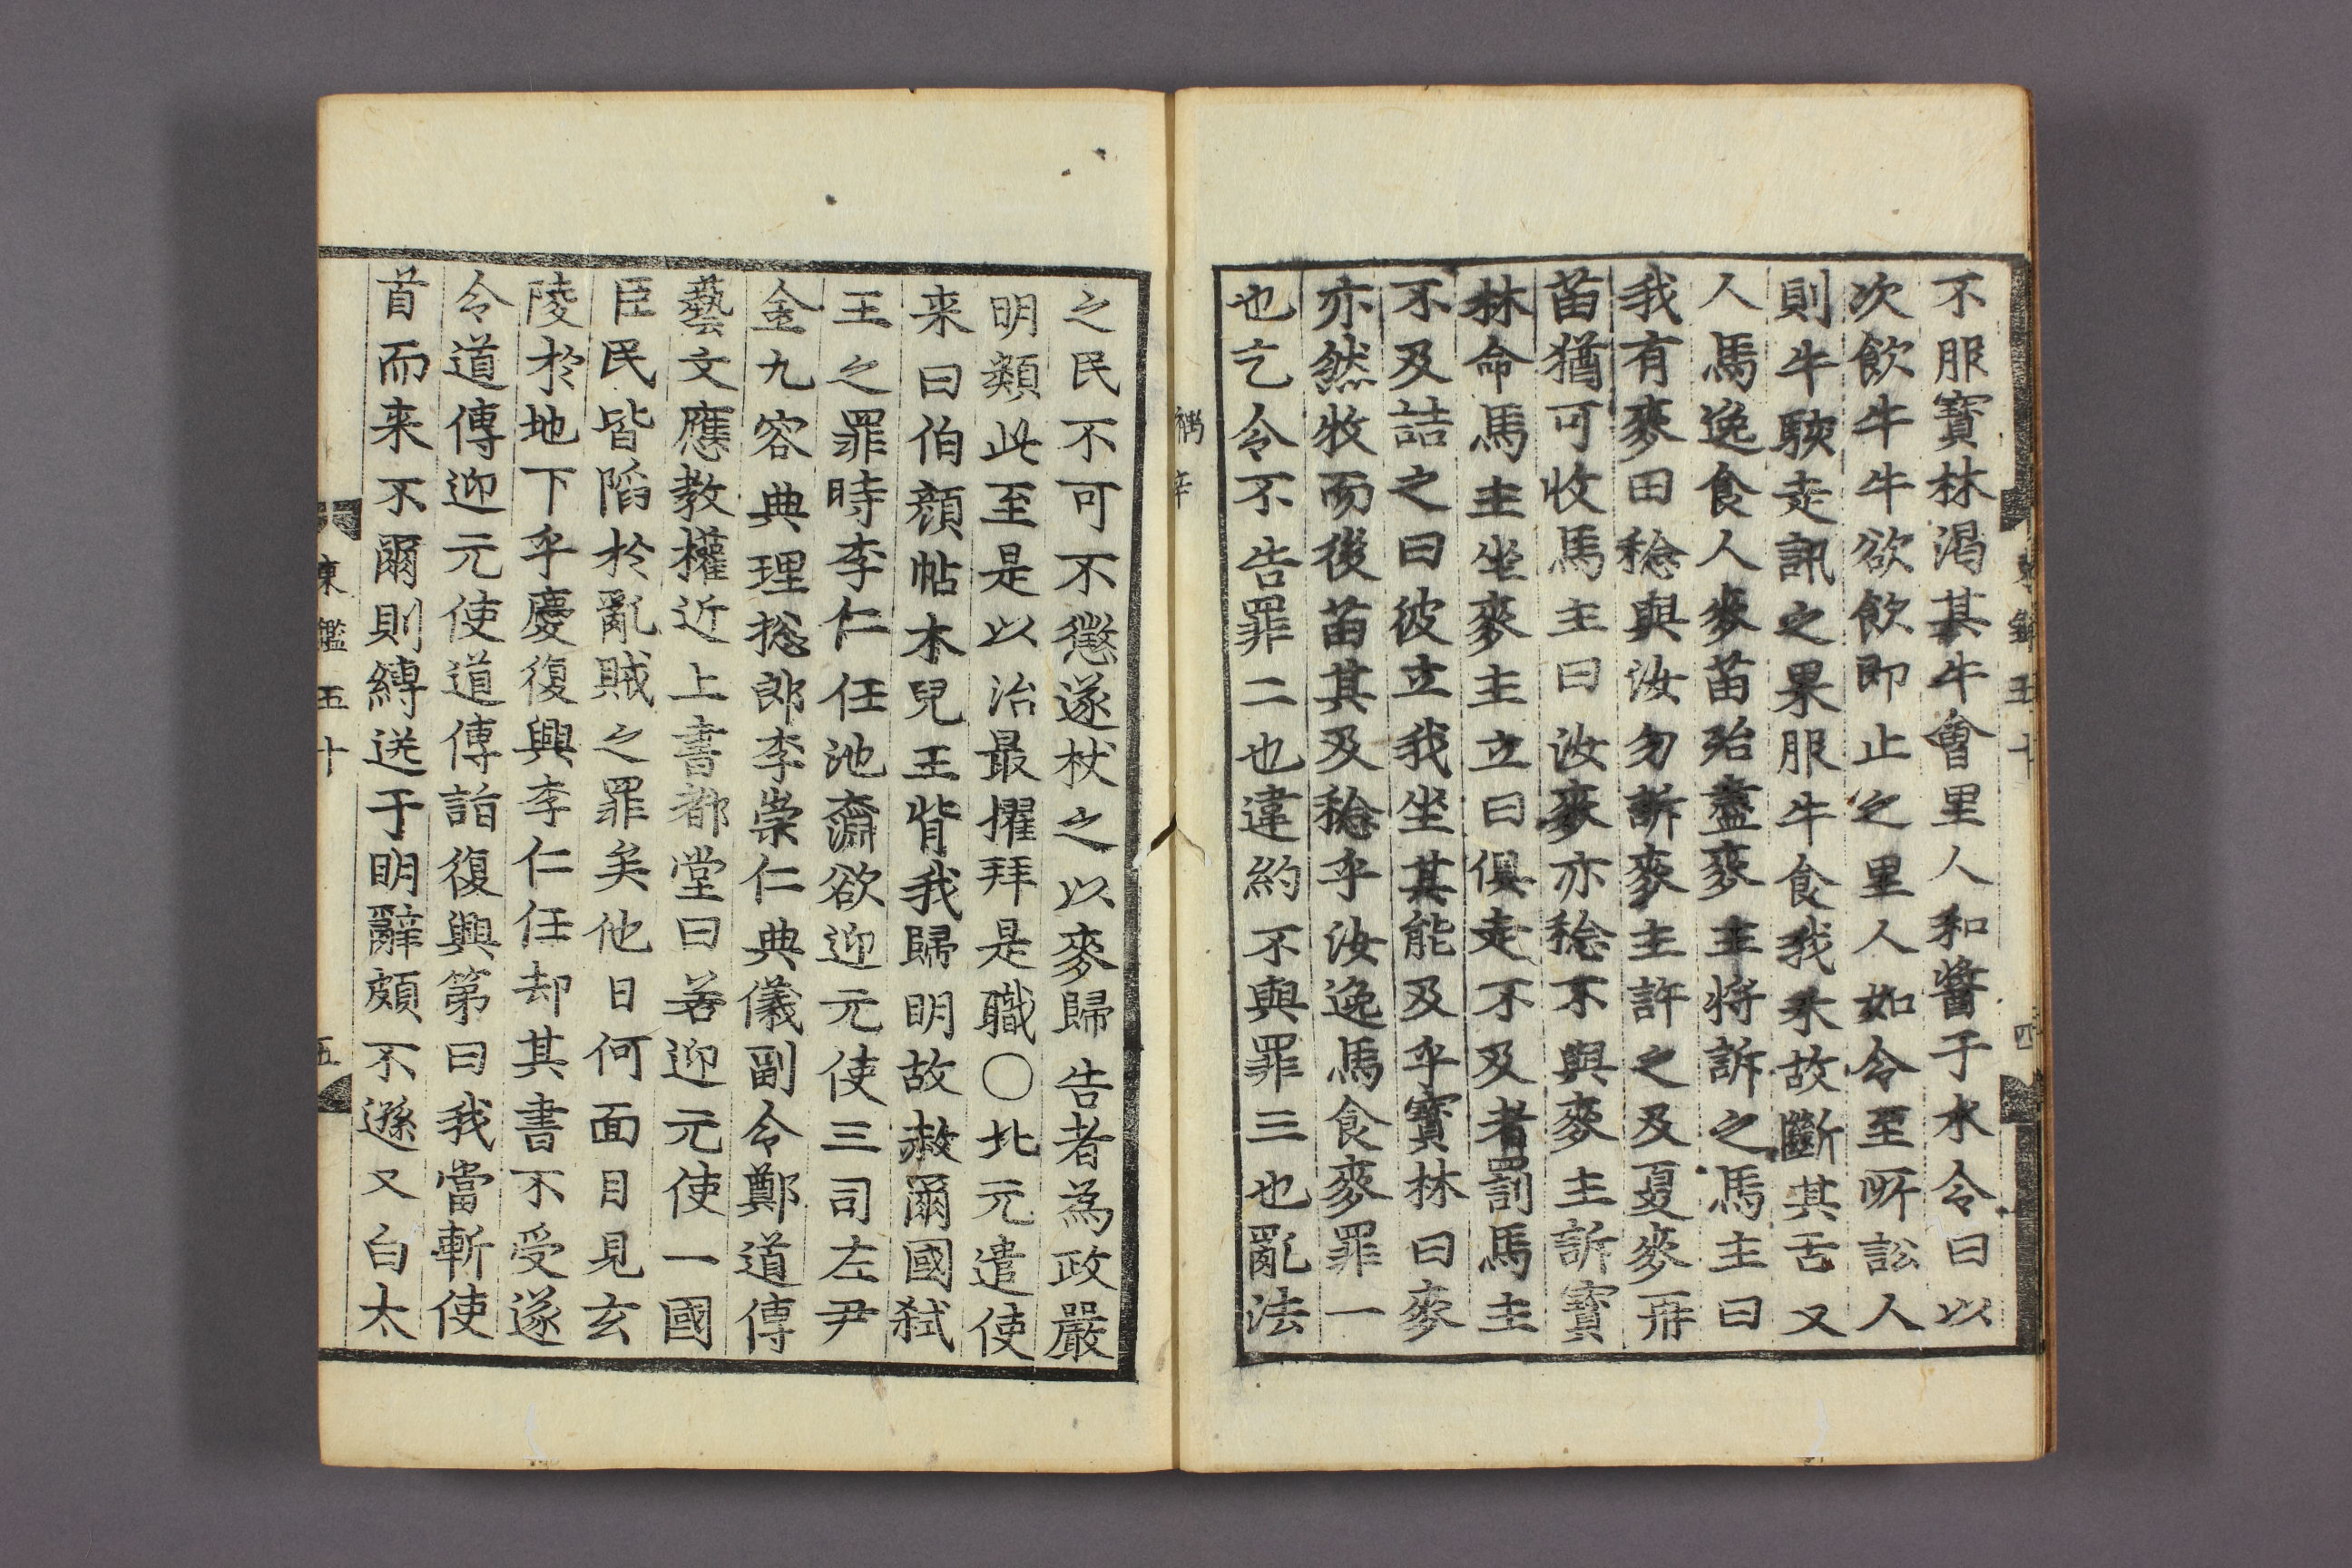 不服寶林渴其牛會里人和醬于水令曰以
次飮牛牛欲飮即止之里人如令至所訟人
則牛駭走訊之果服牛食我禾故斷其舌又
人馬逸食人麥苗殆盡麥主將訴之馬主曰
我有麥田稔與汝勿訴麥主許之及夏麥再
苗猶可收馬主曰汝麥亦稔不與麥主訴寶
林命馬主坐麥主立曰俱走不及者罰馬主
不及詰之曰彼立我坐其能及乎寶林曰麥
亦然牧而後苗其及稔乎汝逸馬食麥罪一
也乞令不告罪二也違約不與罪三也亂法
禑辛
之民不可不懲遂杖之以麥歸告者為政嚴
明類此至是以治最擢拜是職〇北元遣使
来曰伯顔帖木兒王背我歸明故赦爾國弑
王之罪時李仁任池奫欲迎元使三司左尹
金九容典理摠郎李崇仁典儀副令鄭道傳
藝文應教權近上書都堂曰若迎元使一國
臣民皆陷於亂賊之罪矣他日何面目見玄
陵於地下乎慶復興李仁任却其書不受遂
令道傳迎元使道傳詣復興第曰我當斬使
首而来不爾則縛送于明辭頗不遜又白太
東鑑五十 五